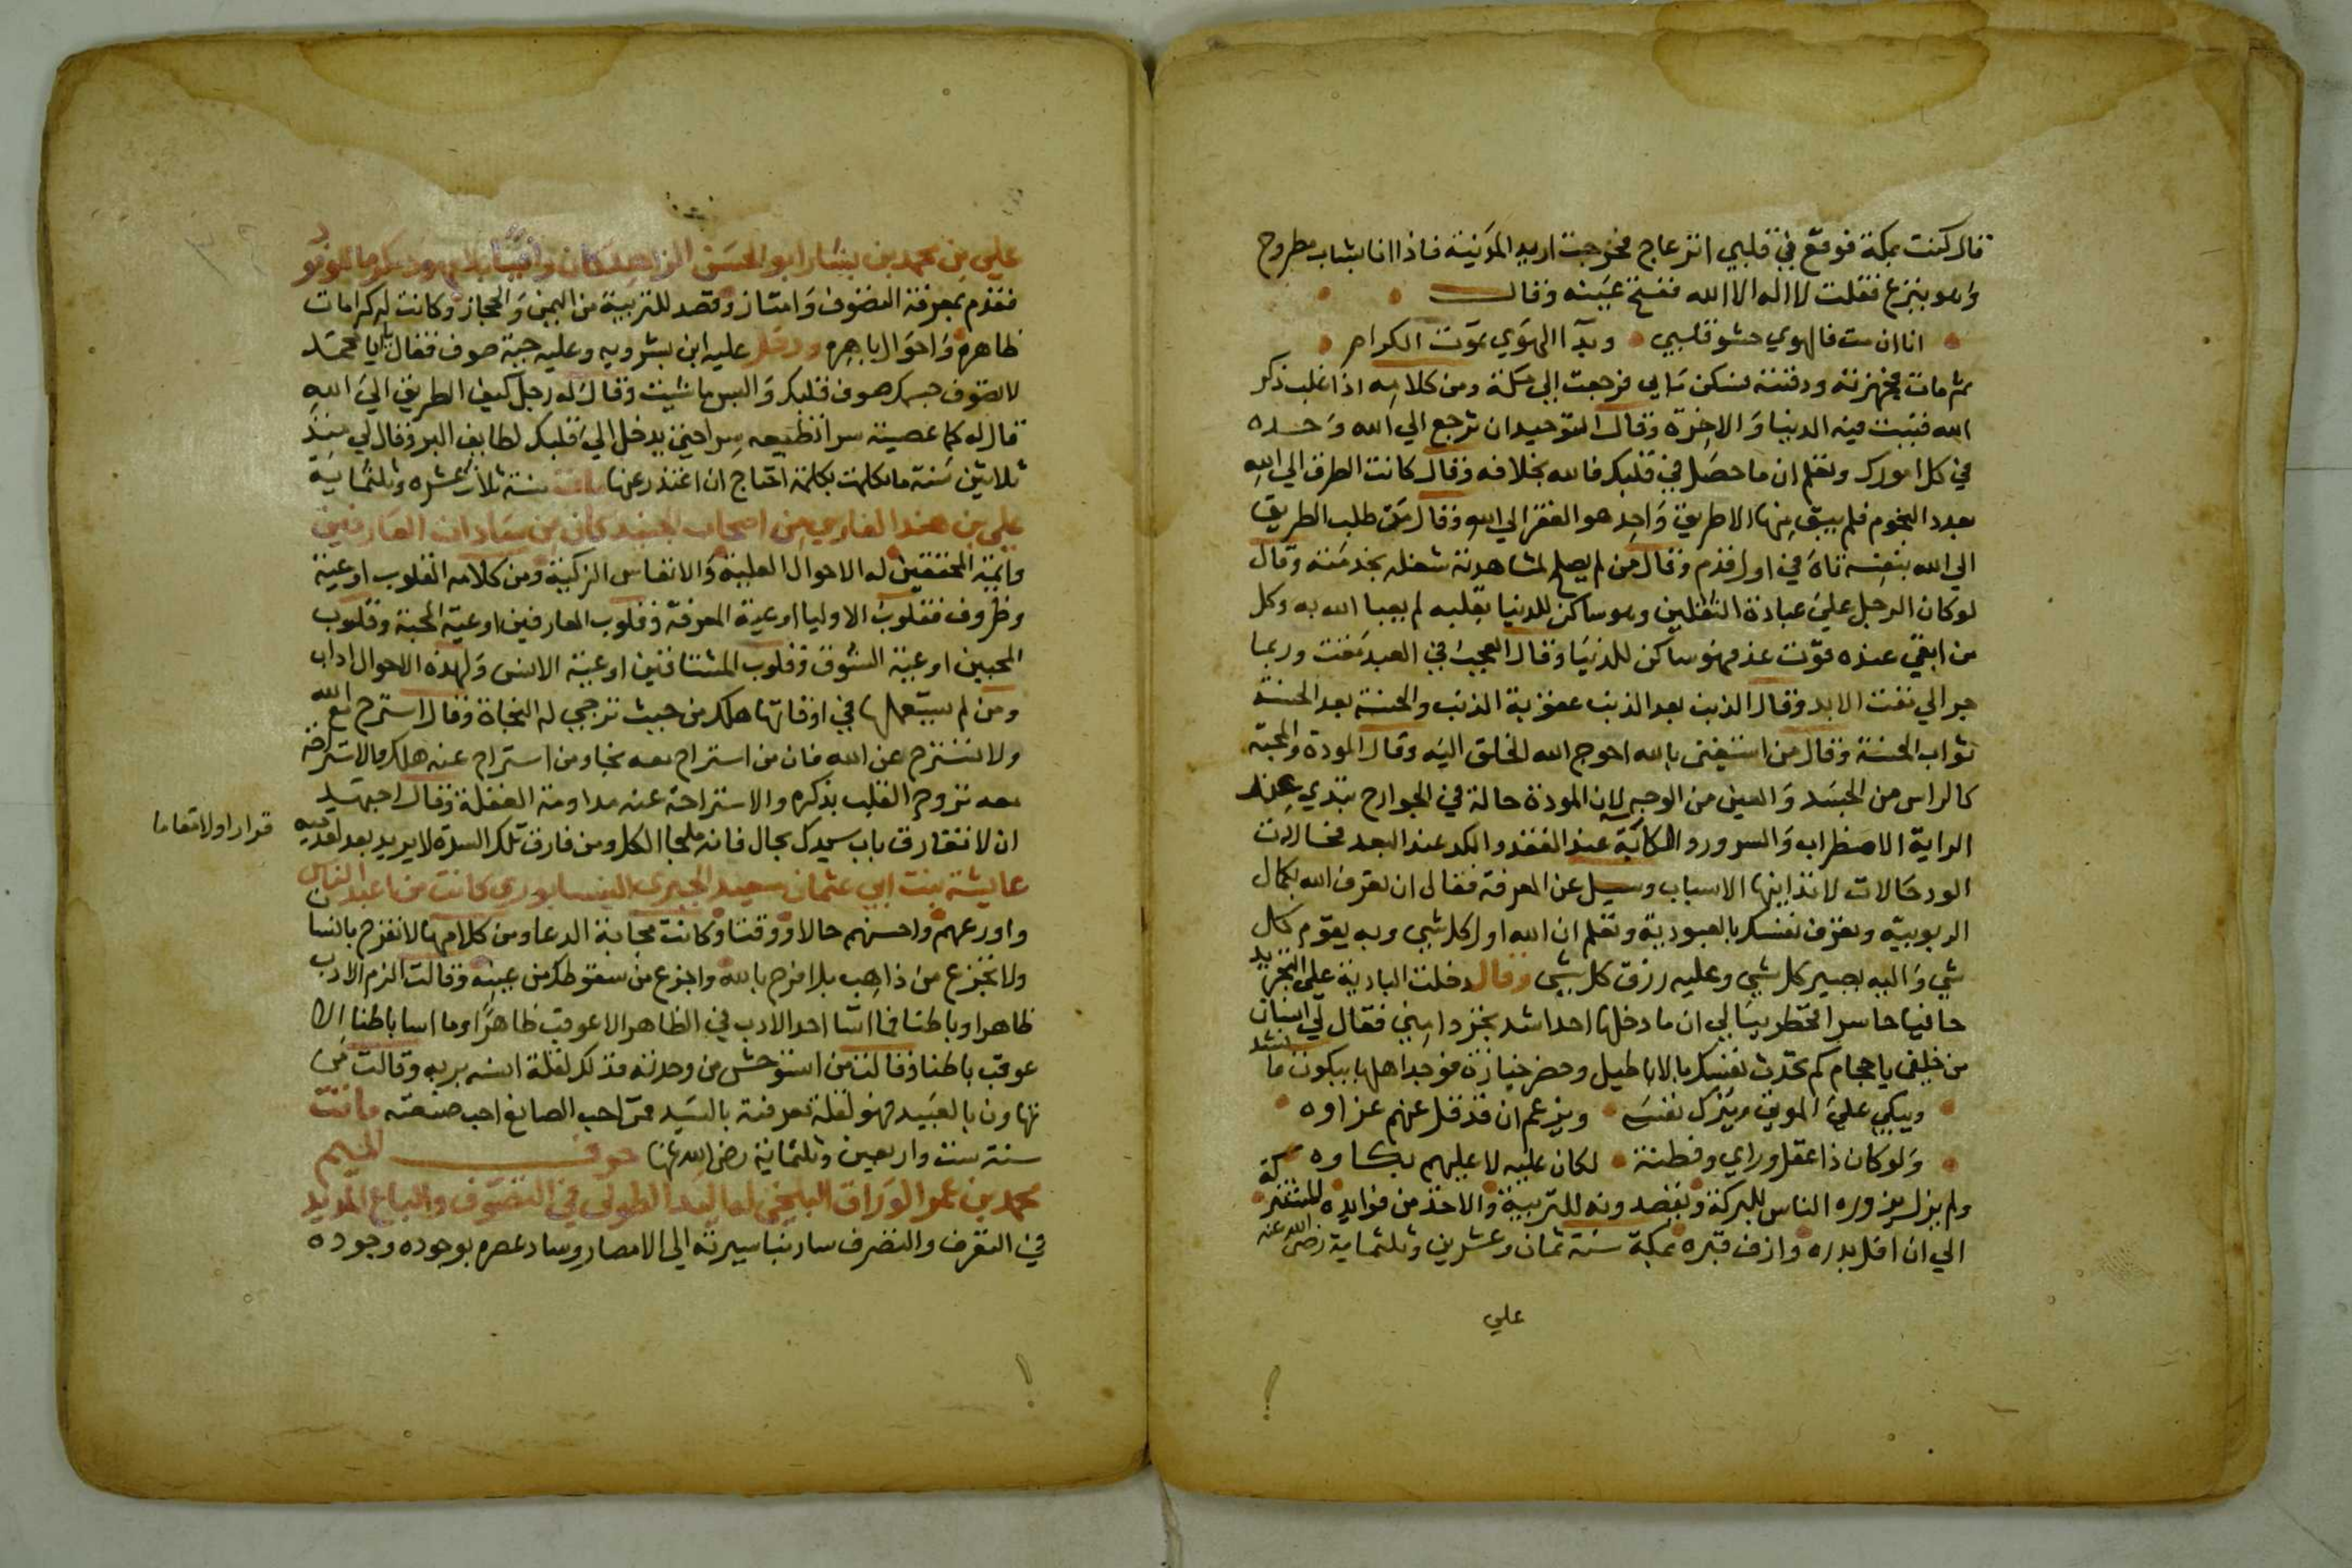 قال كنت بمكة فوقع في قلبي انزعاج فخرجت اريد المدينة فاذا انا بشاب مطروح
وهو ينزع فقلت لا اله الا الله ففتح عينه وقال
انا ان مت فالهوي حشو قلبي وبدا الهوي يموت الكرام
ثم مات فجهزته ودفنته فسكن ما بي فرجعت الي مكة ومن كلامه اذا غلب ذكر
الله فنيت فيه الدنيا والاخرة وقال التوحيد ان ترجع الي الله وحده
في كل امورك وتعلم ان ما حصل في قلبك فالله بخلافه وقال كانت الطرق الي الله
بعدد النجوم فلم يبق منها الا طريق واحد هو الفقر الي الله وقال من طلب الطريق
الي الله بنفسه تاه في اول قدم وقال من لم يصلح لمشاهدته شغله بخدمته وقال
لو كان الرجل علي عبادة الثقلين وهو ساكن للدنيا بقلبه لم يعبا الله به وكل
من ابقي عنده قوت غد فهو ساكن للدنيا وقال العجب في العبد مقت وربما
جر الي مقت الابد وقال الذنب بعد الذنب عقوبة الذنب والحسنة بعد الحسنة
ثواب الحسنة وقال من استغني بالله احوج الله الخلق اليه وقال المودة والمحبة
كالراس من الجسد والعين من الوجه لان المودة حالة في الجوارح تبدي عند
الراية الاضطراب والسرور والكابة عند الفقد والكد عند البعد فحالات
الود حالات لا تذابنها الاسباب وسيل عن المعرفة فقال ان تعرف الله بكمال
الربوبية وتعرف نفسك بالعبودية وتعلم ان الله اول كل شي وبه يقوم كل
شي واليه يصير كل شي وعليه رزق كل شي وقال دخلت البادية علي التجريد
حافيا حاسرا فخطر ببالي ان ما دخلها احد اشد تجردا مني فقال لي انسان
من خلفي يا حجام كم تحدث نفسك بالاباطيل وحضر جنازة فوجد اهلها يبكون فانشد
ويبكي علي الموتي ويترك نفسه ويزعم ان قد قل عنهم عزاوه
ولو كان ذا عقل وراي وفطنة لكان عليه لا عليهم بكاوه
ولم يزل يزوره الناس للبركة ويقصدونه للتربية والاخذ من فوايده
الي ان افل بدره وازف قبره بمكة سنة ثمان وعشرين وثلثماية رضي الله عنه
علي
علي بن محمد بن بشار ابو الحسن الزاهد كان
فقدم بمعرفة التصوف وامتاز وقصد للتربية من اليمن والحجاز وكانت له كرامات
ظاهره واحوال باهره ودخل عليه ابن بشرويه وعليه جبة صوف فقال يابا محمد
لا تصوف جسمك صوف قلبك والبس ما شيت وقال له رجل كيف الطريق الي الله
قال له كما عصيته سرا تطيعه سرا حتي يدخل الي قلبك لطايف البر وقال لي منذ
ثلاثين سنة ما تكلمت بكلمة احتاج ان اعتذر عنها مات سنة ثلاث عشره وثلثماية
علي بن هند الفارسي من اصحاب الجنيد كان من سادات العارفين
وايمة المحققين له الاحوال العلية والانفاس الزكية ومن كلامه القلوب اوعية
وظروف فقلوب الاوليا اوعية المعرفة وقلوب العارفين اوعية المحبة وقلوب
المحبين اوعية الشوق وقلوب المشتاقين اوعية الانس ولهذه الاحوال اداب
ومن لم يستعملها في اوقاتها هلك من حيث ترجي له النجاة وقال استرح مع الله
ولا تسترح عن الله فان من استراح معه نجا ومن استراح عنه هلك فالاستراحة
معه تروح القلب بذكره والاستراحة عنه مداومة الغفلة وقال اجتهد
ان لا تفارق باب سيدك بحال فانه ملجا الكل ومن فارق تلك السدة لا يريد بعد لقدميه
قرارا ولا مقاما
عايشة بنت ابي عثمان سعيد الحيري النيسابوري كانت من اعبد الناس
واورعهم واحسنهم حالا ووقتا وكانت مجابة الدعا ومن كلامها لا تفرح بالنسا
ولا تجزع من ذاهب بل افرح بالله واجزع من سقوطك من عينه وقالت الزم الادب
ظاهرا وباطنا فما اسا احد الادب في الظاهر الا عوقب ظاهرا وما اسا باطنا الا
عوقب باطنا وقالت من استوحش من وحدته فذلك لقلة انسه بربه وقالت من
تهاون بالعبيد فهو لقلة معرفته بالسيد فمن احب الصانع احب صنعته ماتت
سنة ست واربعين وثلثماية رضي الله عنها حرف الميم
محمد بن عمر الوراق البلخي له اليد الطولي في التصوف والباع المديد
في التعرف والتصرف سار نبا سيرته الي الامصار وساد عصره بوجوده وجوده